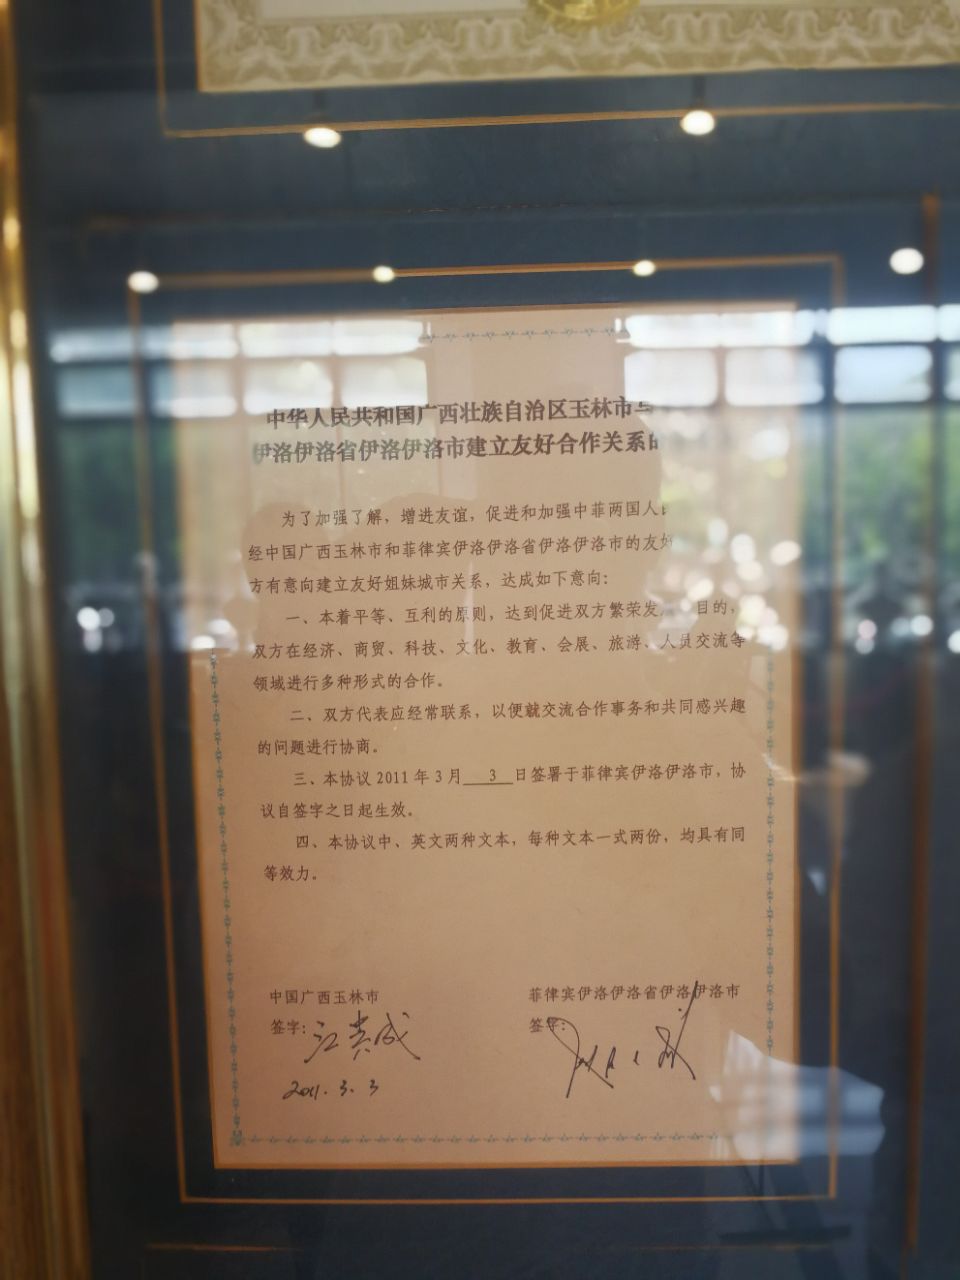 中华人民共和国广西壮族自治区玉林市与
伊洛伊洛省伊洛伊洛市建立友好合作关系的
为了加强了解，增进友谊，促进和加强中菲两国人民
经中国广西玉林市和菲律宾伊洛伊洛省伊洛伊洛市的友好
方有意向建立友好姐妹城市关系，达成如下意向：
一、本着平等、互利的原则，达到促进双方繁荣发 目的，
双方在经济、商贸、科技、文化、教育、会展、旅游、人员交流等
领域进行多种形式的合作。
二、双方代表应经常联系，以便就交流合作事务和共同感兴趣
的问题进行协商。
三、本协议 2011 年 3 月 3 日签署于菲律宾伊洛伊洛市，协
议自签字之日起生效。
四、本协议中、英文两种文本，每种文本一式两份，均具有同
等效力。
中国广西玉林市
菲律宾伊洛伊洛省伊洛伊洛市
签字：
签字：
2011.3.3